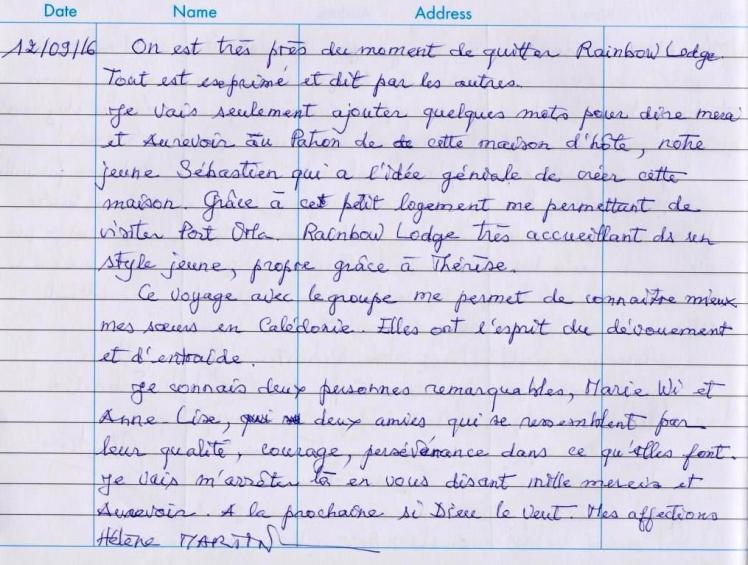 Date Name Address
12/09/16 On est très près du moment de quitter Rainbow Lodge.
Tout est exprimé et dit par les autres.
Je vais seulement ajouter quelques mots pour dire merci
et Aurevoir āu Patron de cette maison d'hôte, notre
jeune Sébastien qui a l'idée géniale de créer cette
maison. Grâce à cet petit logement me permettant de
visiter Port Orla. Rainbow Lodge très accueillant ds un
style jeune, propre grâce à Thérèse.
Ce voyage avec le groupe me permet de connaître mieux
mes sœurs en Calédonie. Elles ont l'esprit du dévouement
et d'entraide.
Je connais deux personnes remarquables, Marie Wi et
Anne-Lise, deux amies qui se ressemblent par
leur qualité, courage, persévérance dans ce qu'elles font.
Je vais m'arrêter là en vous disant mille mercis et
Aurevoir. A la prochaine si Dieu le veut. Mes affections
Hélène MARTIN